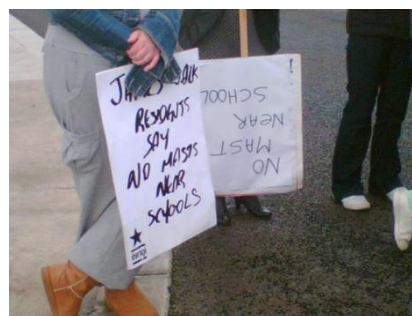 JAMES WALK
RESIDENTS
SAY
NO MASTS
NEAR
SCHOOLS
eirigi
NO
MAST
NEAR
SCHOOL